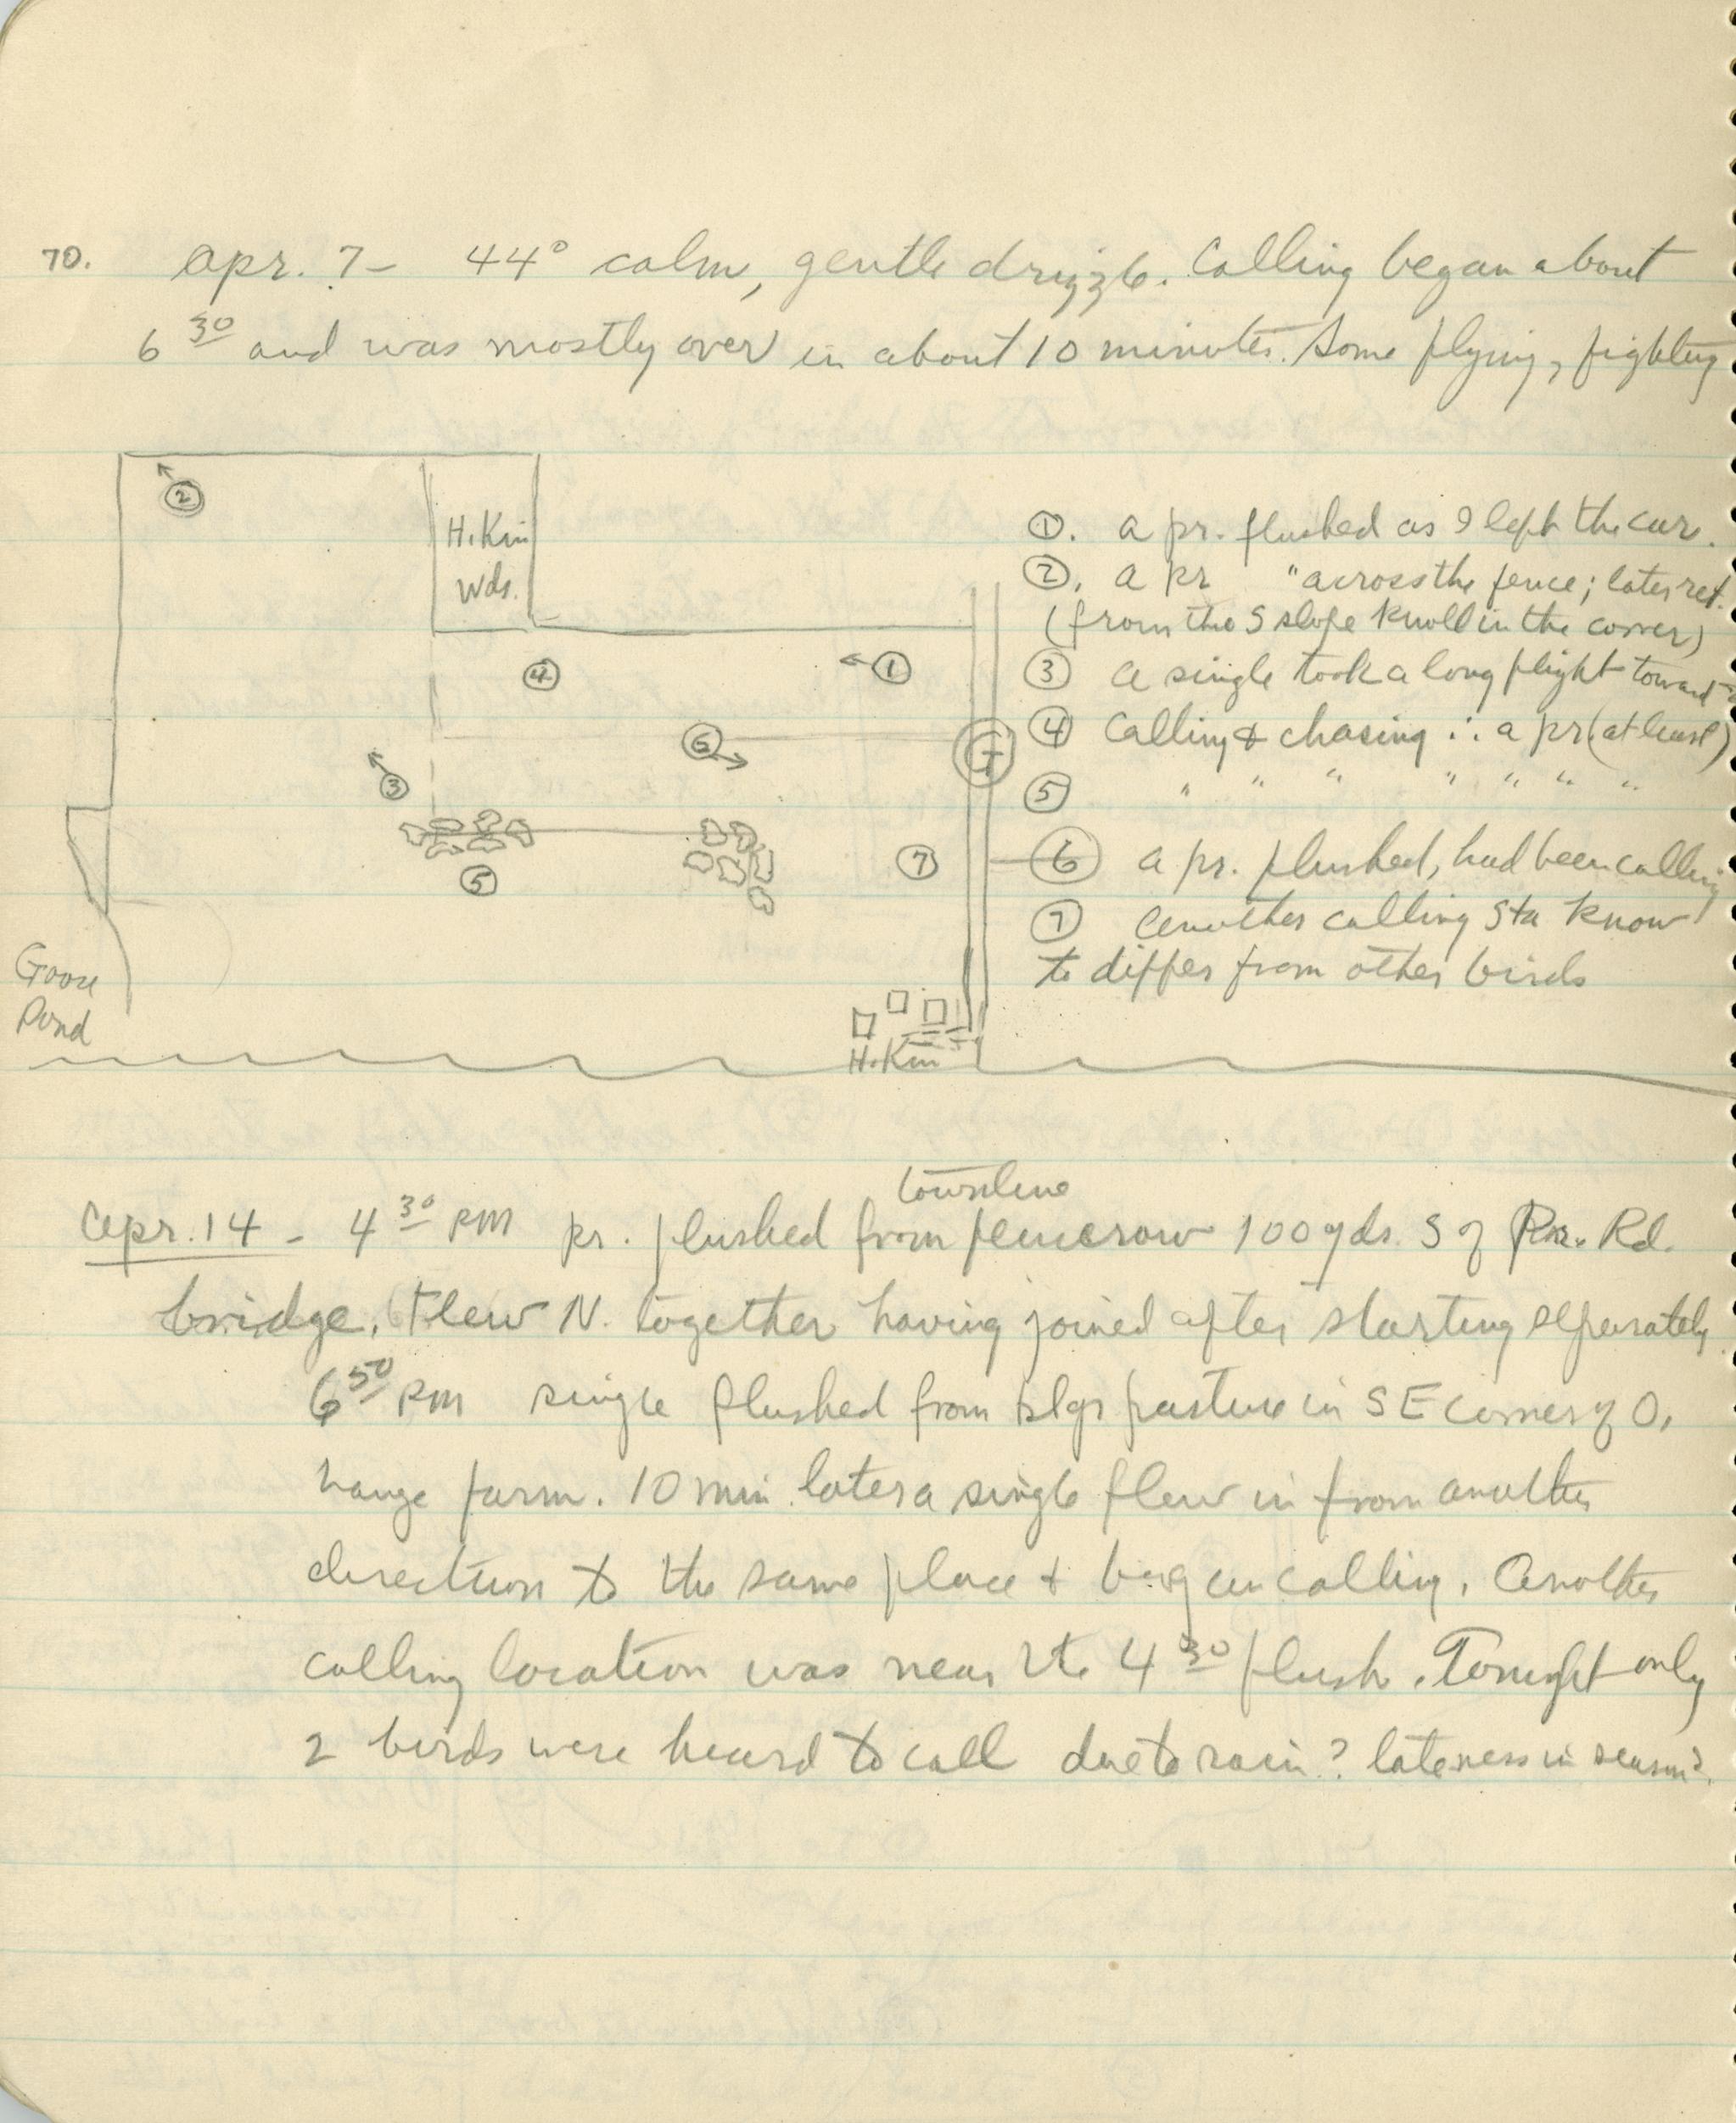 70. Apr. 7 - 44° calm, gentle drizzle. Calling began about
6 30 and was mostly over in about 10 minutes. Some flying, fighting
②
H. Kin
Wds.
④
①
⑥
③
⑤
⑦
Goose
Pond
H. Kin
①. A pr. flushed as I left the car.
②. A pr " across the fence; later ret.
(from the S slope knoll in the corner)
③ A single took a long flight toward
④ Calling & chasing ∴ a pr (at least)
⑤ " " " " " " "
⑥ A pr. flushed, had been calling
⑦ Another calling sta know
to differ from other birds
townline
Apr. 14 - 4 30 PM pr. flushed from fencerow 100 yds. S of Rd.
bridge. Flew N. together having joined after starting separately
6 50 PM single flushed from pasture in SE corner of O.
farm. 10 min. later a single flew in from another
direction to the same place & began calling. Another
calling location was near the 4 30 flush. Tonight only
2 birds were heard to call due to rain? lateness in season?